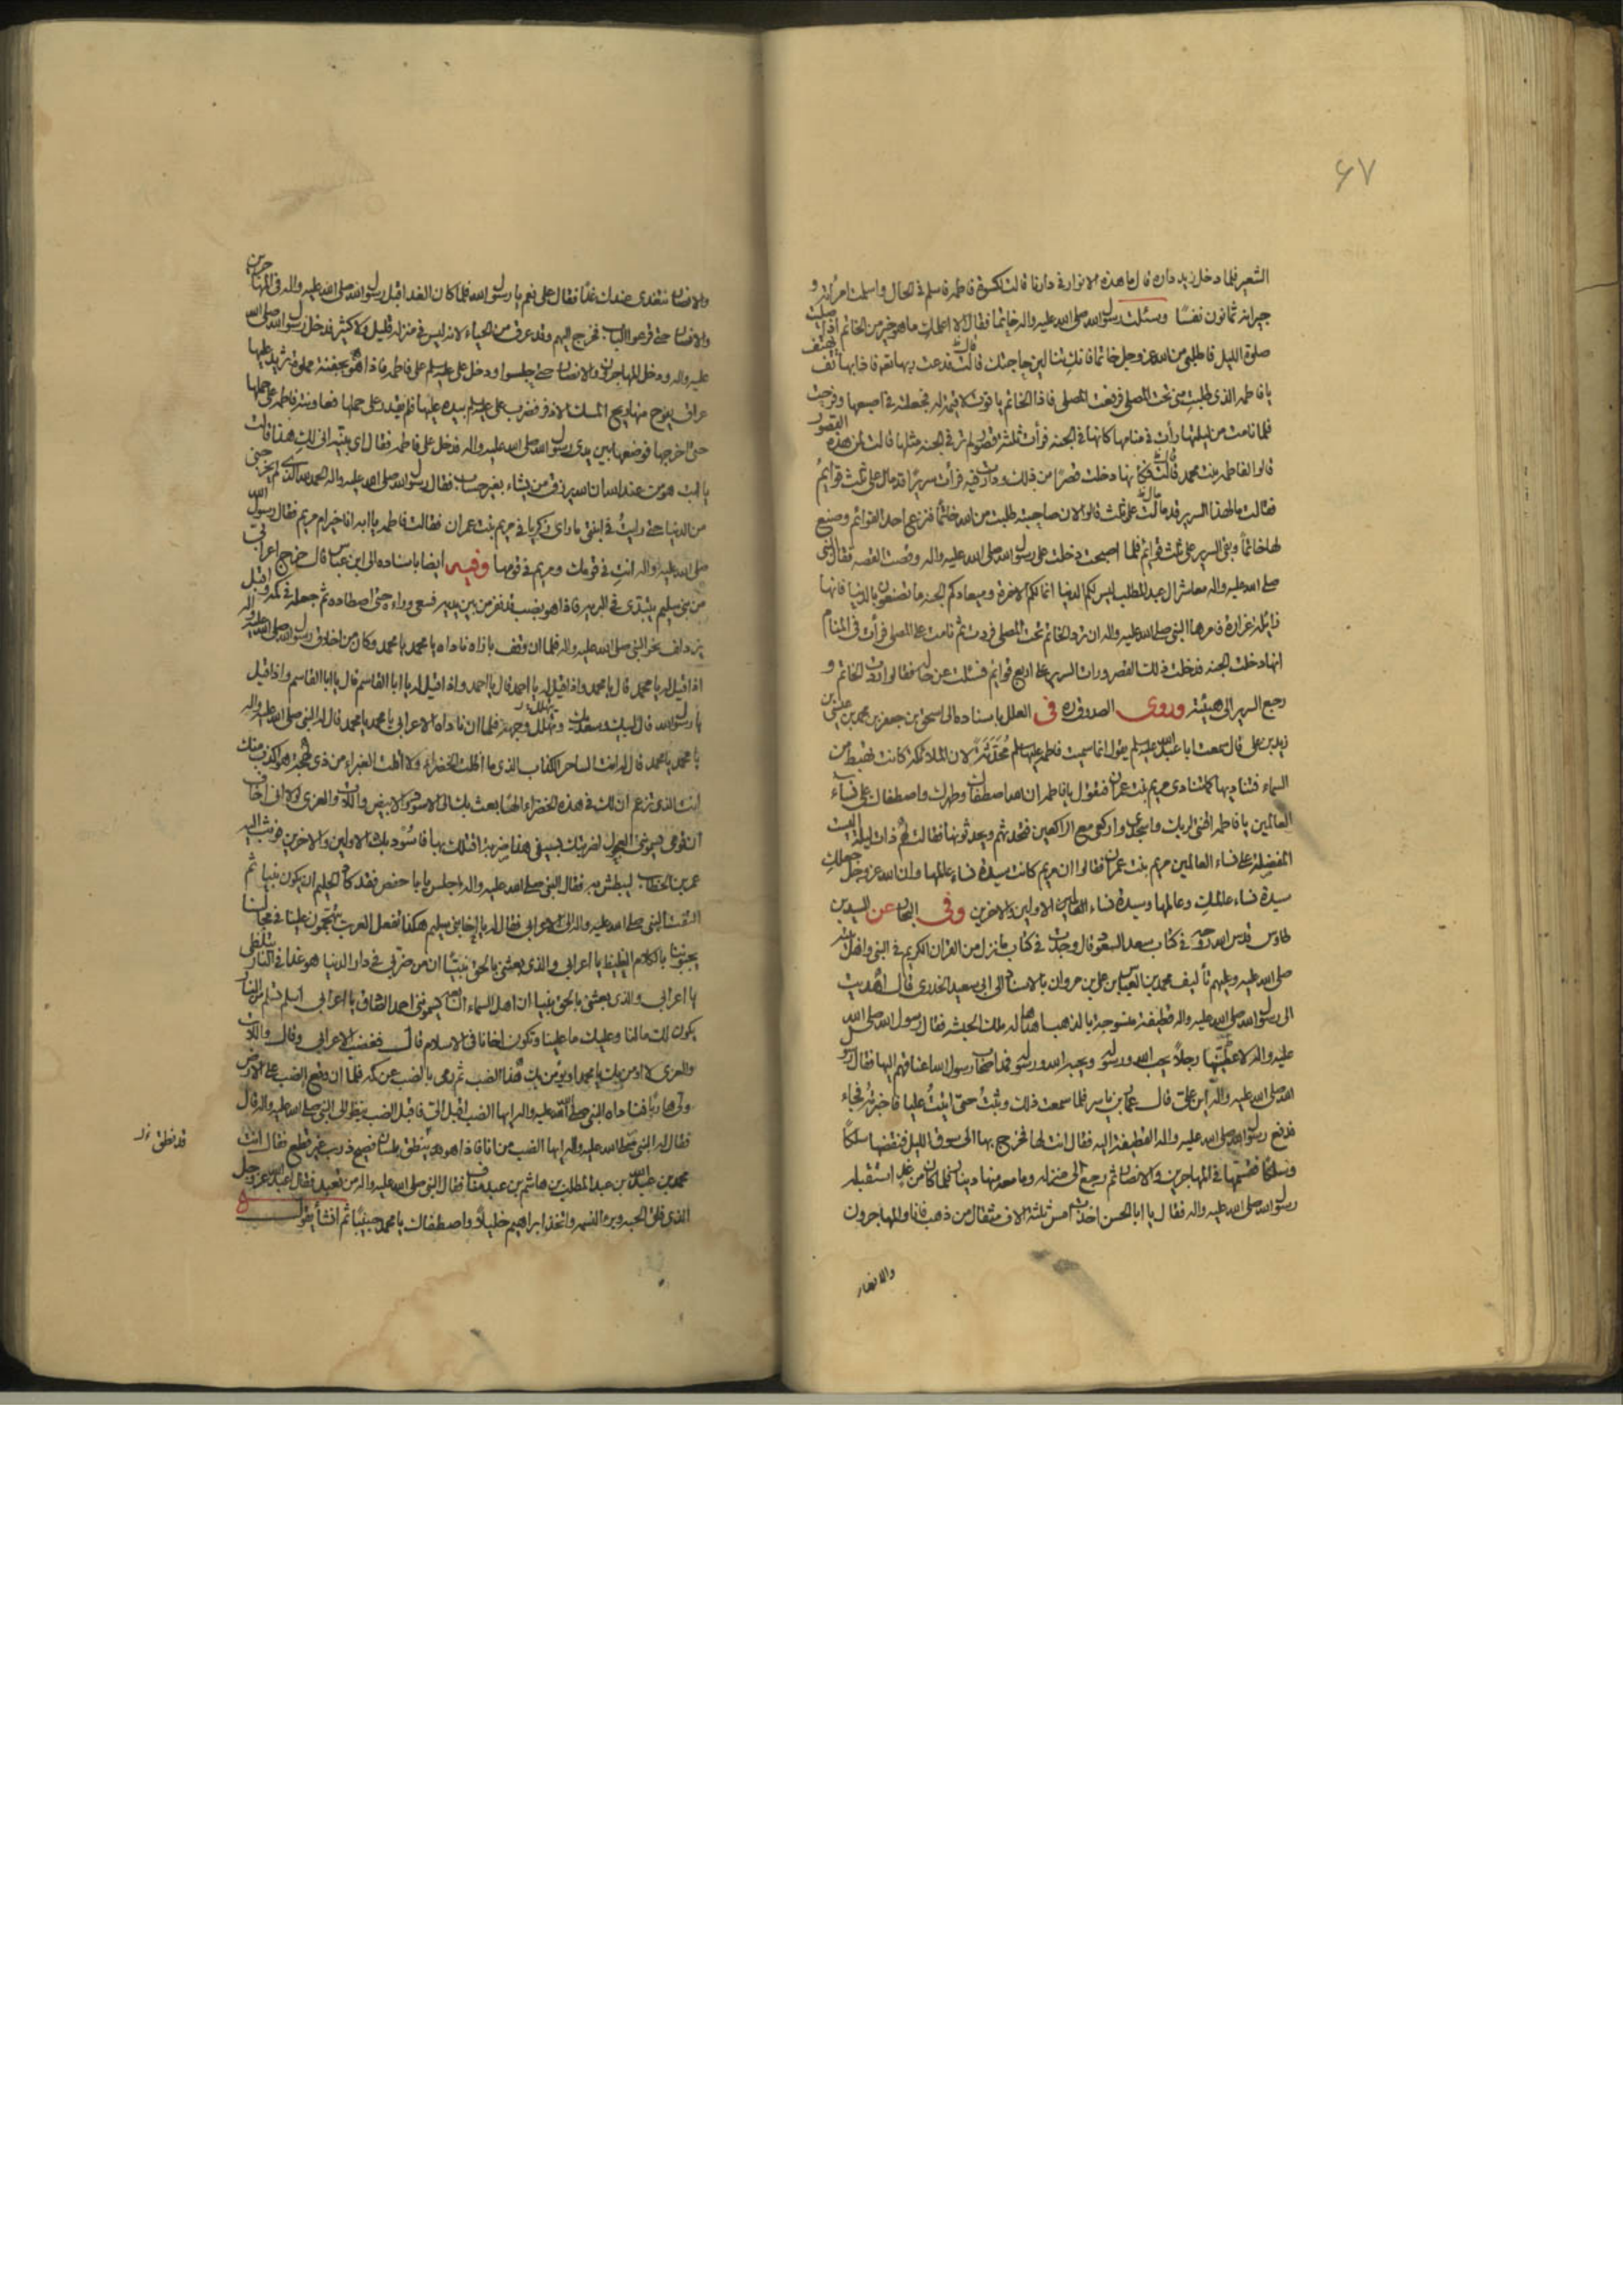 ۶۷
الشعير فلما دخل زيد داره قال ما هذه الانوار في دارنا قالت لكسوة فاطمة فاسلم في الحال واسلمت امرأته و
جيرانه ثمانون نفسًا وسئلت رسول الله صلى الله عليه واله خاتمًا فقال لا اعلمك ما هو خير من الخاتم اذا صليت
صلوة الليل فاطلبي من الله عز وجل خاتمًا فانك تنالين حاجتك قال فدعت ربها تعالى فاذا بهاتف يهتف
يا فاطمة الذي طلبت مني تحت المصلى فرفعت المصلى فاذا الخاتم ياقوت لا قيمة له فجعلته في اصبعها وفرحت
فلما نامت من ليلتها رأت في منامها كانها في الجنة فرأت ثلثة قصور لم تر في الجنة مثلها قالت لمن هذه القصور
قالوا لفاطمة بنت محمد قال فكانها دخلت قصرًا من ذلك ودارت فيه فرأت سريرًا قد مال على ثلث قوائم
فقالت ما لهذا السرير قد مال على ثلث قالوا لان صاحبته طلبت من الله خاتمًا فنزع احد القوائم وصنع
لها خاتمًا وبقي السرير على ثلث قوائم فلما اصبحت دخلت على رسول الله صلى الله عليه واله وقصت القصة فقال النبي
صلى الله عليه واله معاشر ال عبد المطلب ليس لكم الدنيا انما لكم الاخرة وميعادكم الجنة ما تصنعون بالدنيا فانها
زائلة غرارة فامرها النبي صلى الله عليه واله ان ترد الخاتم تحت المصلى فردت ثم نامت على المصلى فرأت في المنام
انها دخلت الجنة فدخلت ذلك القصر ورأت السرير على اربع قوائم فسئلت عن حاله فقالوا ردت الخاتم و
رجع السرير الى هيئته وروى الصدوق ره في العلل باسناده الى اسحق بن جعفر بن محمد بن عيسى بن
زيد بن علي قال سمعت ابا عبد الله عليه السلم يقول انما سميت فاطمة عليها السلم محدثة لان الملائكة كانت تهبط من
السماء فتناديها كما تنادى مريم بنت عمران فتقول يا فاطمة ان الله اصطفاك وطهرك واصطفاك على نساء
العالمين يا فاطمة اقنتي لربك واسجدي واركعي مع الراكعين فتحدثهم ويحدثونها فقالت لهم ذات ليلة اليست
المفضلة على نساء العالمين مريم بنت عمران فقالوا ان مريم كانت سيدة نساء عالمها وان الله عز وجل جعلك
سيدة نساء عالمك وعالمها وسيدة نساء الاولين والاخرين وفي البحار عن السيد بن
طاوس قدس الله روحه في كتاب سعد السعود قال وجدت في كتاب ما نزل من القران الكريم في النبي واهل بيته
صلى الله عليه وعليهم تأليف محمد بن العباس بن علي بن مروان بالاسناد الى ابي سعيد الخدري قال اهديت
الى رسول الله صلى الله عليه واله قطيفة منسوجة بالذهب اهداها له ملك الحبشة فقال رسول الله صلى الله
عليه واله لاعطيها رجلًا يحب الله ورسوله ويحبه الله ورسوله فمد اصحاب رسول الله اعناقهم اليها فقال رسول
الله صلى الله عليه واله اين علي قال عمار بن ياسر فلما سمعت ذلك وثبت حتى اتيت عليًا فاخبرته فجاء
فدفع رسول الله صلى الله عليه واله القطيفة اليه فقال انت لها فخرج بها الى سوق الليل فنقضها سلكًا
وسلكًا فقسمها في المهاجرين والانصار ثم رجع الى منزله وما معه منها دينار فلما كان من غد استقبله
رسول الله صلى الله عليه واله فقال يا ابا الحسن اخذت امس ثلثة الاف مثقال من ذهب فانا والمهاجرون
والانصار
والانصار نتغدى عندك غدًا فقال علي نعم يا رسول الله فلما كان الغد اقبل رسول الله صلى الله عليه واله في المهاجرين
والانصار حتى قرعوا الباب فخرج اليهم وقد عرق من الحياء لانه ليس في منزله قليل ولا كثير فدخل رسول الله صلى الله
عليه واله ودخل المهاجرون والانصار حتى جلسوا ودخل علي عليه السلم على فاطمة فاذا هو بجفنة مملوة ثريد عليها
عراق يفوح منها ريح المسك الاذفر فضرب علي عليه السلم بيده عليها فلم يقدر على حملها فعاونته فاطمة على حملها
حتى اخرجها فوضعها بين يدي رسول الله صلى الله عليه واله فدخل على فاطمة فقال اي بنية انى لك هذا قالت
يا ابت هو من عند الله ان الله يرزق من يشاء بغير حساب فقال رسول الله صلى الله عليه واله الحمد لله الذي لم يخرجني
من الدنيا حتى رأيت في ابنتي ما راى زكريا في مريم بنت عمران فقالت فاطمة يا ابه انا خير ام مريم فقال رسول الله
صلى الله عليه واله انت في قومك ومريم في قومها وفيه ايضا باسناده الى ابن عباس قال خرج اعرابي
من بني سليم يتبدى في البرية فاذا هو بضب قد نفر من بين يديه فسعى وراءه حتى اصطاده ثم جعله في كمه واقبل
يزدلف نحو النبي صلى الله عليه واله فلما ان وقف بازاه ناداه يا محمد يا محمد وكان من اخلاق رسول الله صلى الله عليه واله
اذا قيل له يا محمد قال يا محمد واذا قيل له يا احمد قال يا احمد واذا قيل له يا ابا القاسم قال يا ابا القاسم واذا قيل
يا رسول الله قال لبيك وسعديك وتهلل وجهه فلما ان ناداه الاعرابي يا محمد يا محمد قال له النبي صلى الله عليه واله
يا محمد يا محمد قال له انت الساحر الكذاب الذي ما اظلت الخضراء ولا اقلت الغبراء من ذي لهجة هو اكذب منك
انت الذي تزعم ان لك في هذه الخضراء الهًا بعث بك الى الاسود والابيض واللات والعزى لولا اني اخاف
ان قومي يسمونني العجول لضربتك بسيفي هذا ضربة اقتلك بها فاسود بك الاولين والاخرين فوثب اليه
عمر بن الخطاب ليبطش به فقال النبي صلى الله عليه واله اجلس يا با حفص فقد كاد الحليم ان يكون نبيًا ثم
التفت النبي صلى الله عليه واله الى الاعرابي فقال له يا اخا بني سليم هكذا تفعل العرب يتهجمون علينا في مجالسنا
يجبهوننا بالكلام الغليظ يا اعرابي والذي بعثني بالحق نبيًا ان من ضر بي في دار الدنيا هو غدا في النار يتلظى
يا اعرابي والذي بعثني بالحق نبيا ان اهل السماء السابعة يسمونني احمد الصادق يا اعرابي اسلم تسلم من النار
يكون لك ما لنا وعليك ما علينا وتكون اخانا في الاسلام قال فغضب الاعرابي وقال واللات
والعزى لا اومن بك يا محمد او يؤمن بك هذا الضب ثم رمى بالضب عن كمه فلما ان وقع الضب على الارض
ولى هاربًا فناداه النبي صلى الله عليه واله ايها الضب اقبل الي فاقبل الضب ينظر الى النبي صلى الله عليه واله قال
فقال له النبي صلى الله عليه واله ايها الضب من انا فاذا هو ينطق بلسان فصيح ذرب غير قطع فقال انت
محمد بن عبد الله بن عبد المطلب بن هاشم بن عبد مناف فقال النبي صلى الله عليه واله من تعبد فقال اعبد الله عز وجل
الذي فلق الحبة وبرء النسمة واتخذ ابراهيم خليلًا واصطفاك يا محمد حبيبًا ثم انشأ يقول
قد نطق